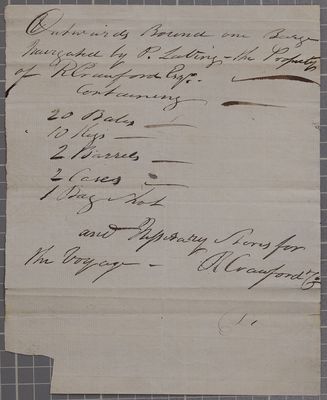 Outwards Bound one Barge
Navigated by P. the Property
of R Crawford Esqr.
Containing
20 Bales —
10 Kegs —
2 Barrels —
2 Cases —
1 Bag Shot
and Nessosary Stores for
the Voyage — R Crawford & Co